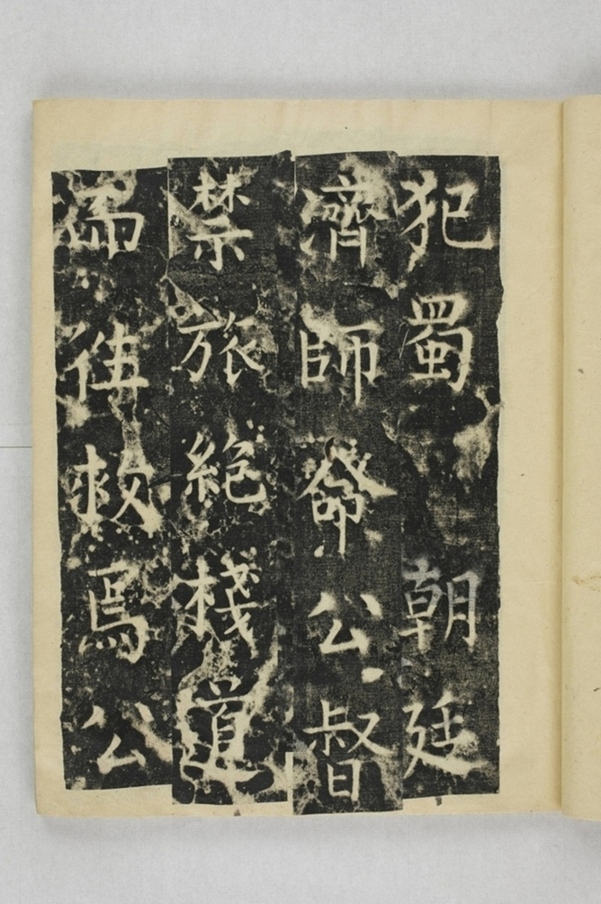 犯蜀朝廷
濟師命公督
禁旅絕棧道
而往救焉公